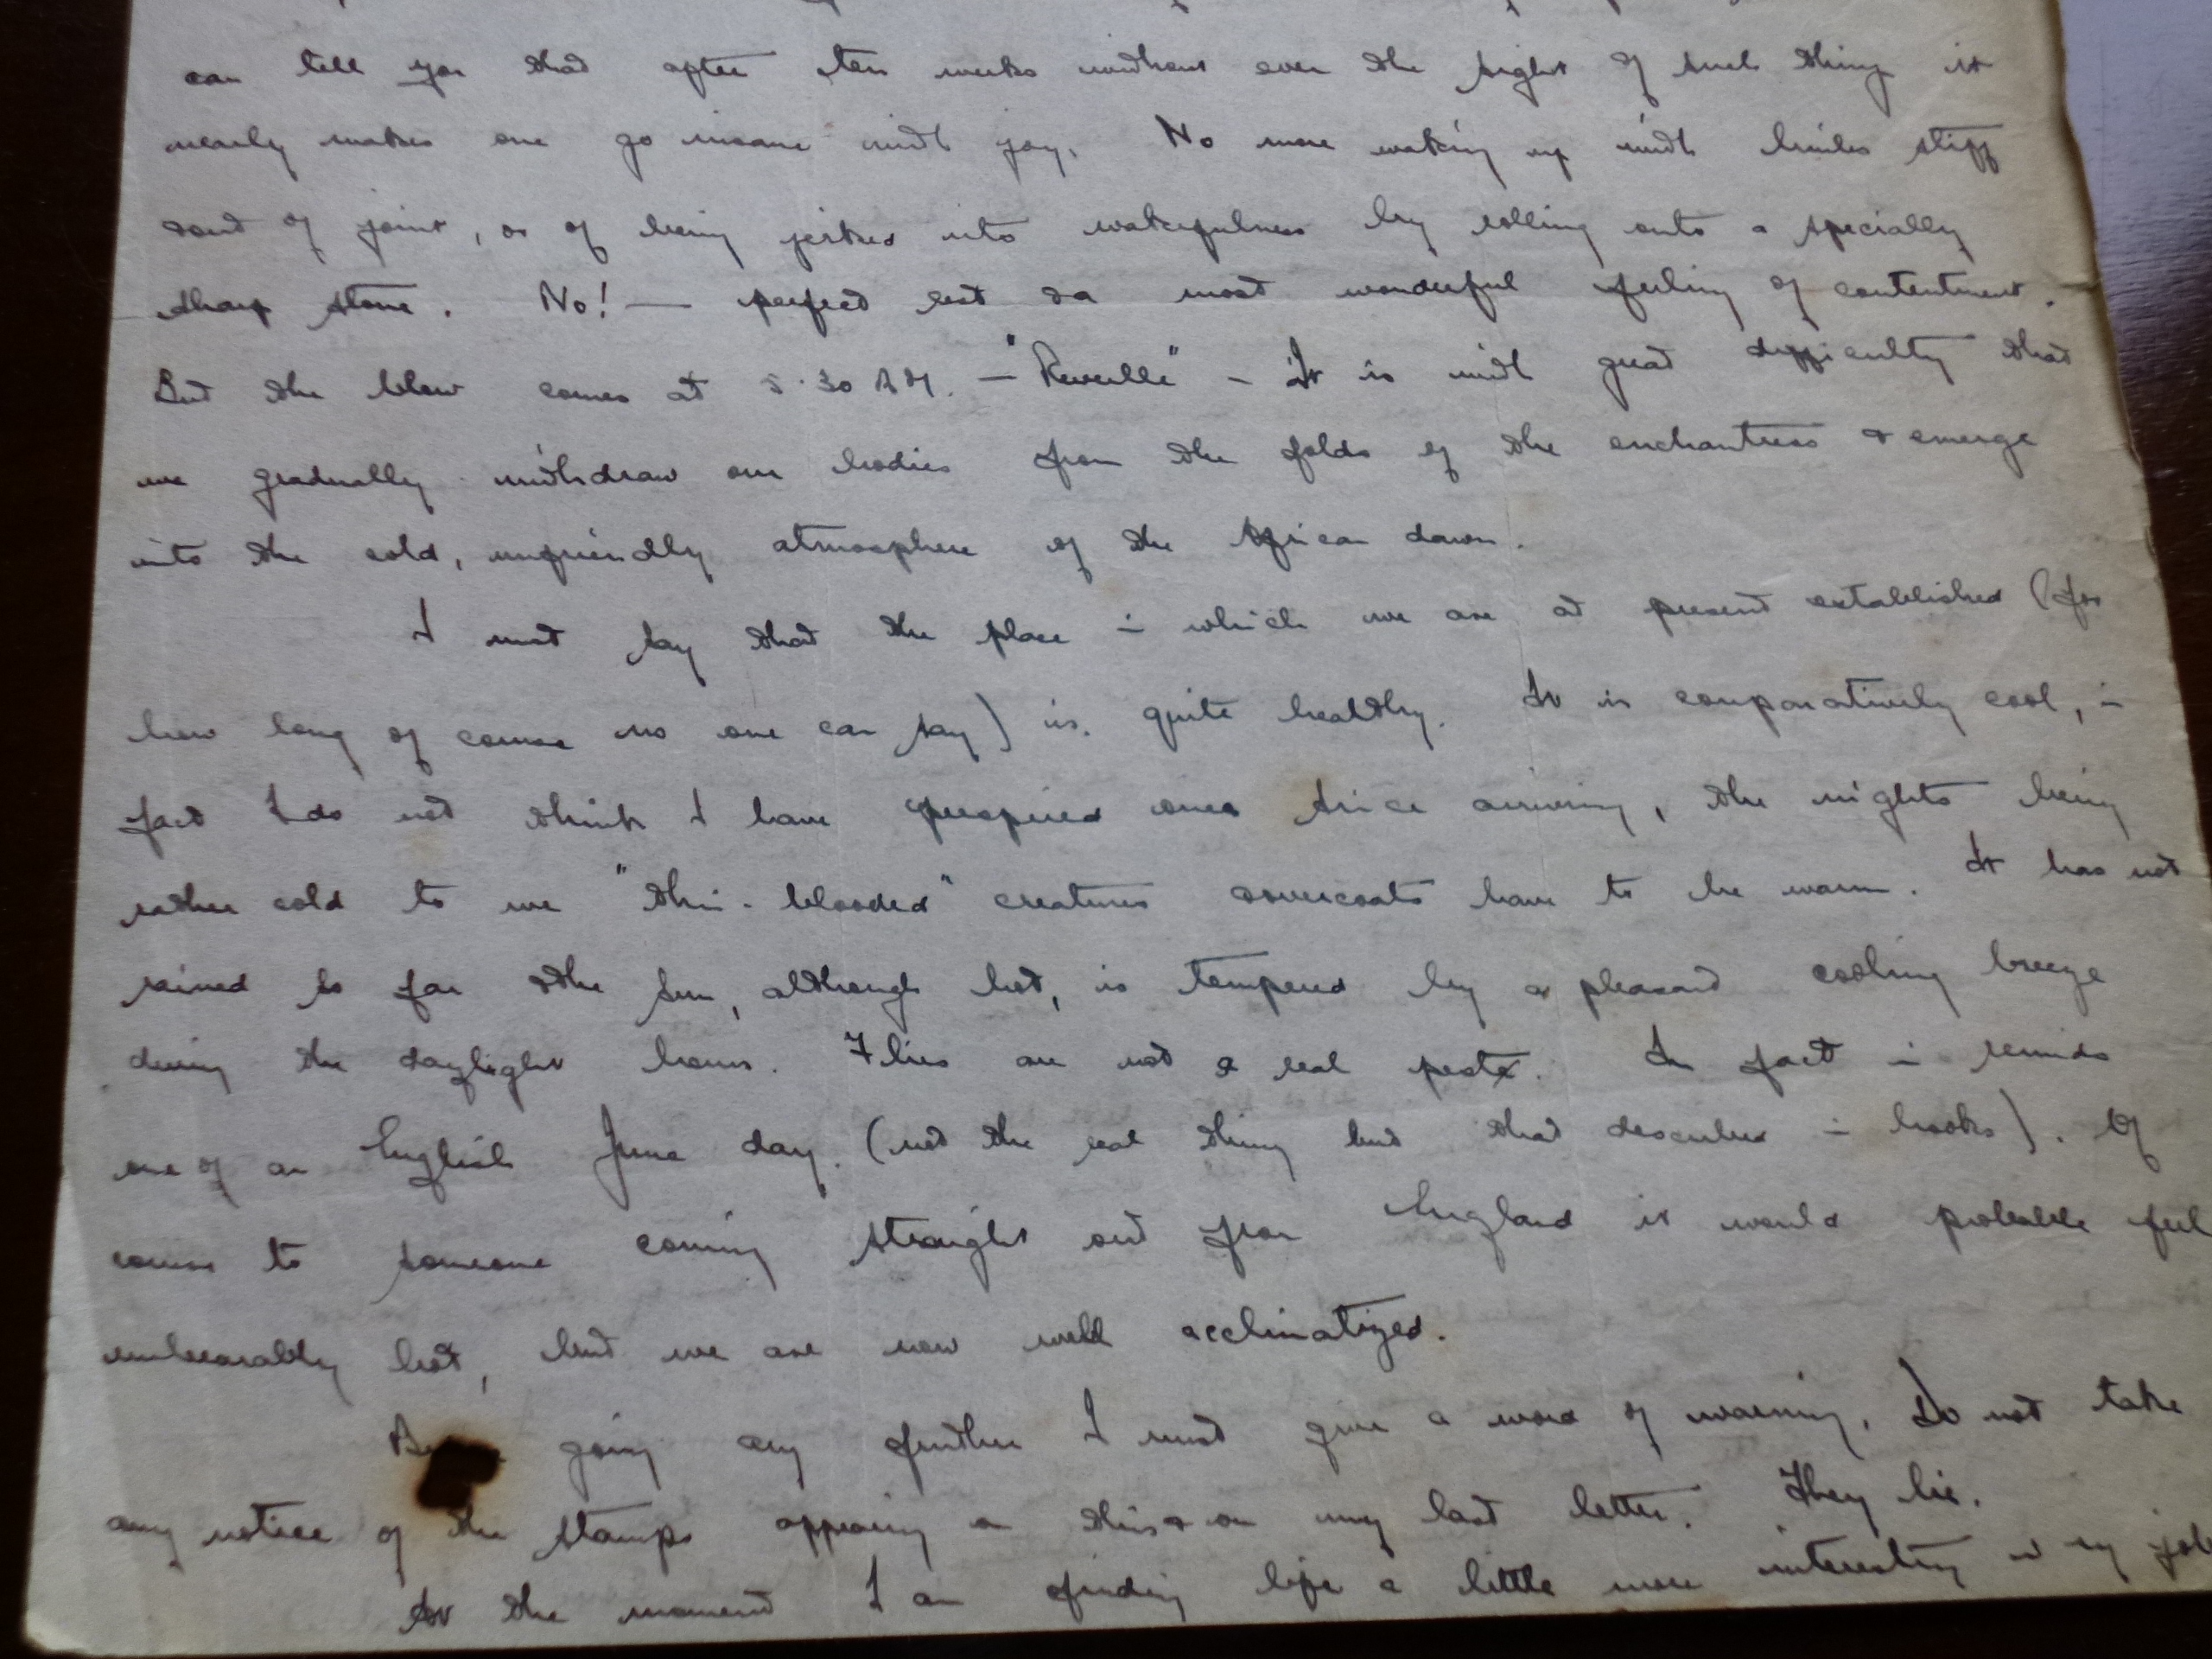 can tell you that after ten weeks without even the sight of such things it
nearly makes one go insane with joy. No more waking up with limbs stiff
& out of joint, or of being jerked into wakefulness by rolling onto a specially
sharp stone. No! — perfect rest & a most wonderful feeling of contentment.
But the blow comes at 5.30 A.M. — "Reveille" - It is with great difficulty that
we gradually withdraw our bodies from the folds of the enchantress & emerge
into the cold, unfriendly atmosphere of the African dawn.
I must say that the place in which we are at present established (for
how long of course no one can say) is quite healthy. It is comparatively cool, in
fact I do not think I have perspired once since arriving, the nights being
rather cold to we "thin-blooded" creatures & overcoats have to be warn. It has not
rained so far & the sun, although hot, is tempered by a pleasant cooling breeze
during the daylight hours. Flies are not a real pest. In fact it reminds
one of an English June day. (not the real thing but that described in books). Of
course to someone coming straight out from England it would probable feel
unbearably hot, but we are now well acclimatized.
going any further I must give a word of warning. Do not take
any notice of the stamps appearing on this & on my last letter. They lie.
At the moment I am finding life a little more interesting my job